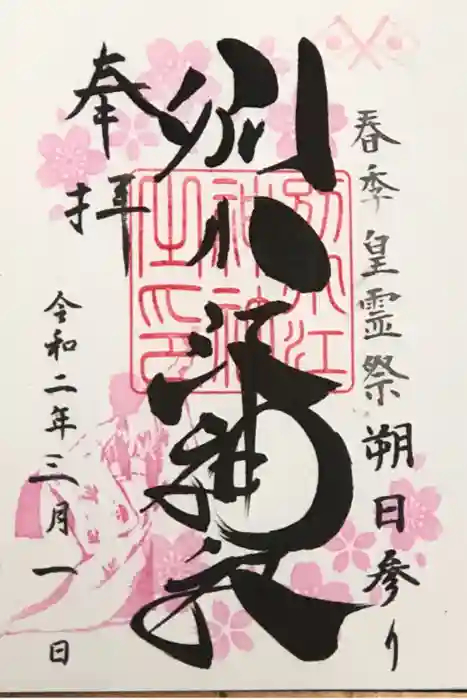 春季皇霊祭朔日参り
別小江神社
別小江
神社
之印
奉拝
令和二年三月一日